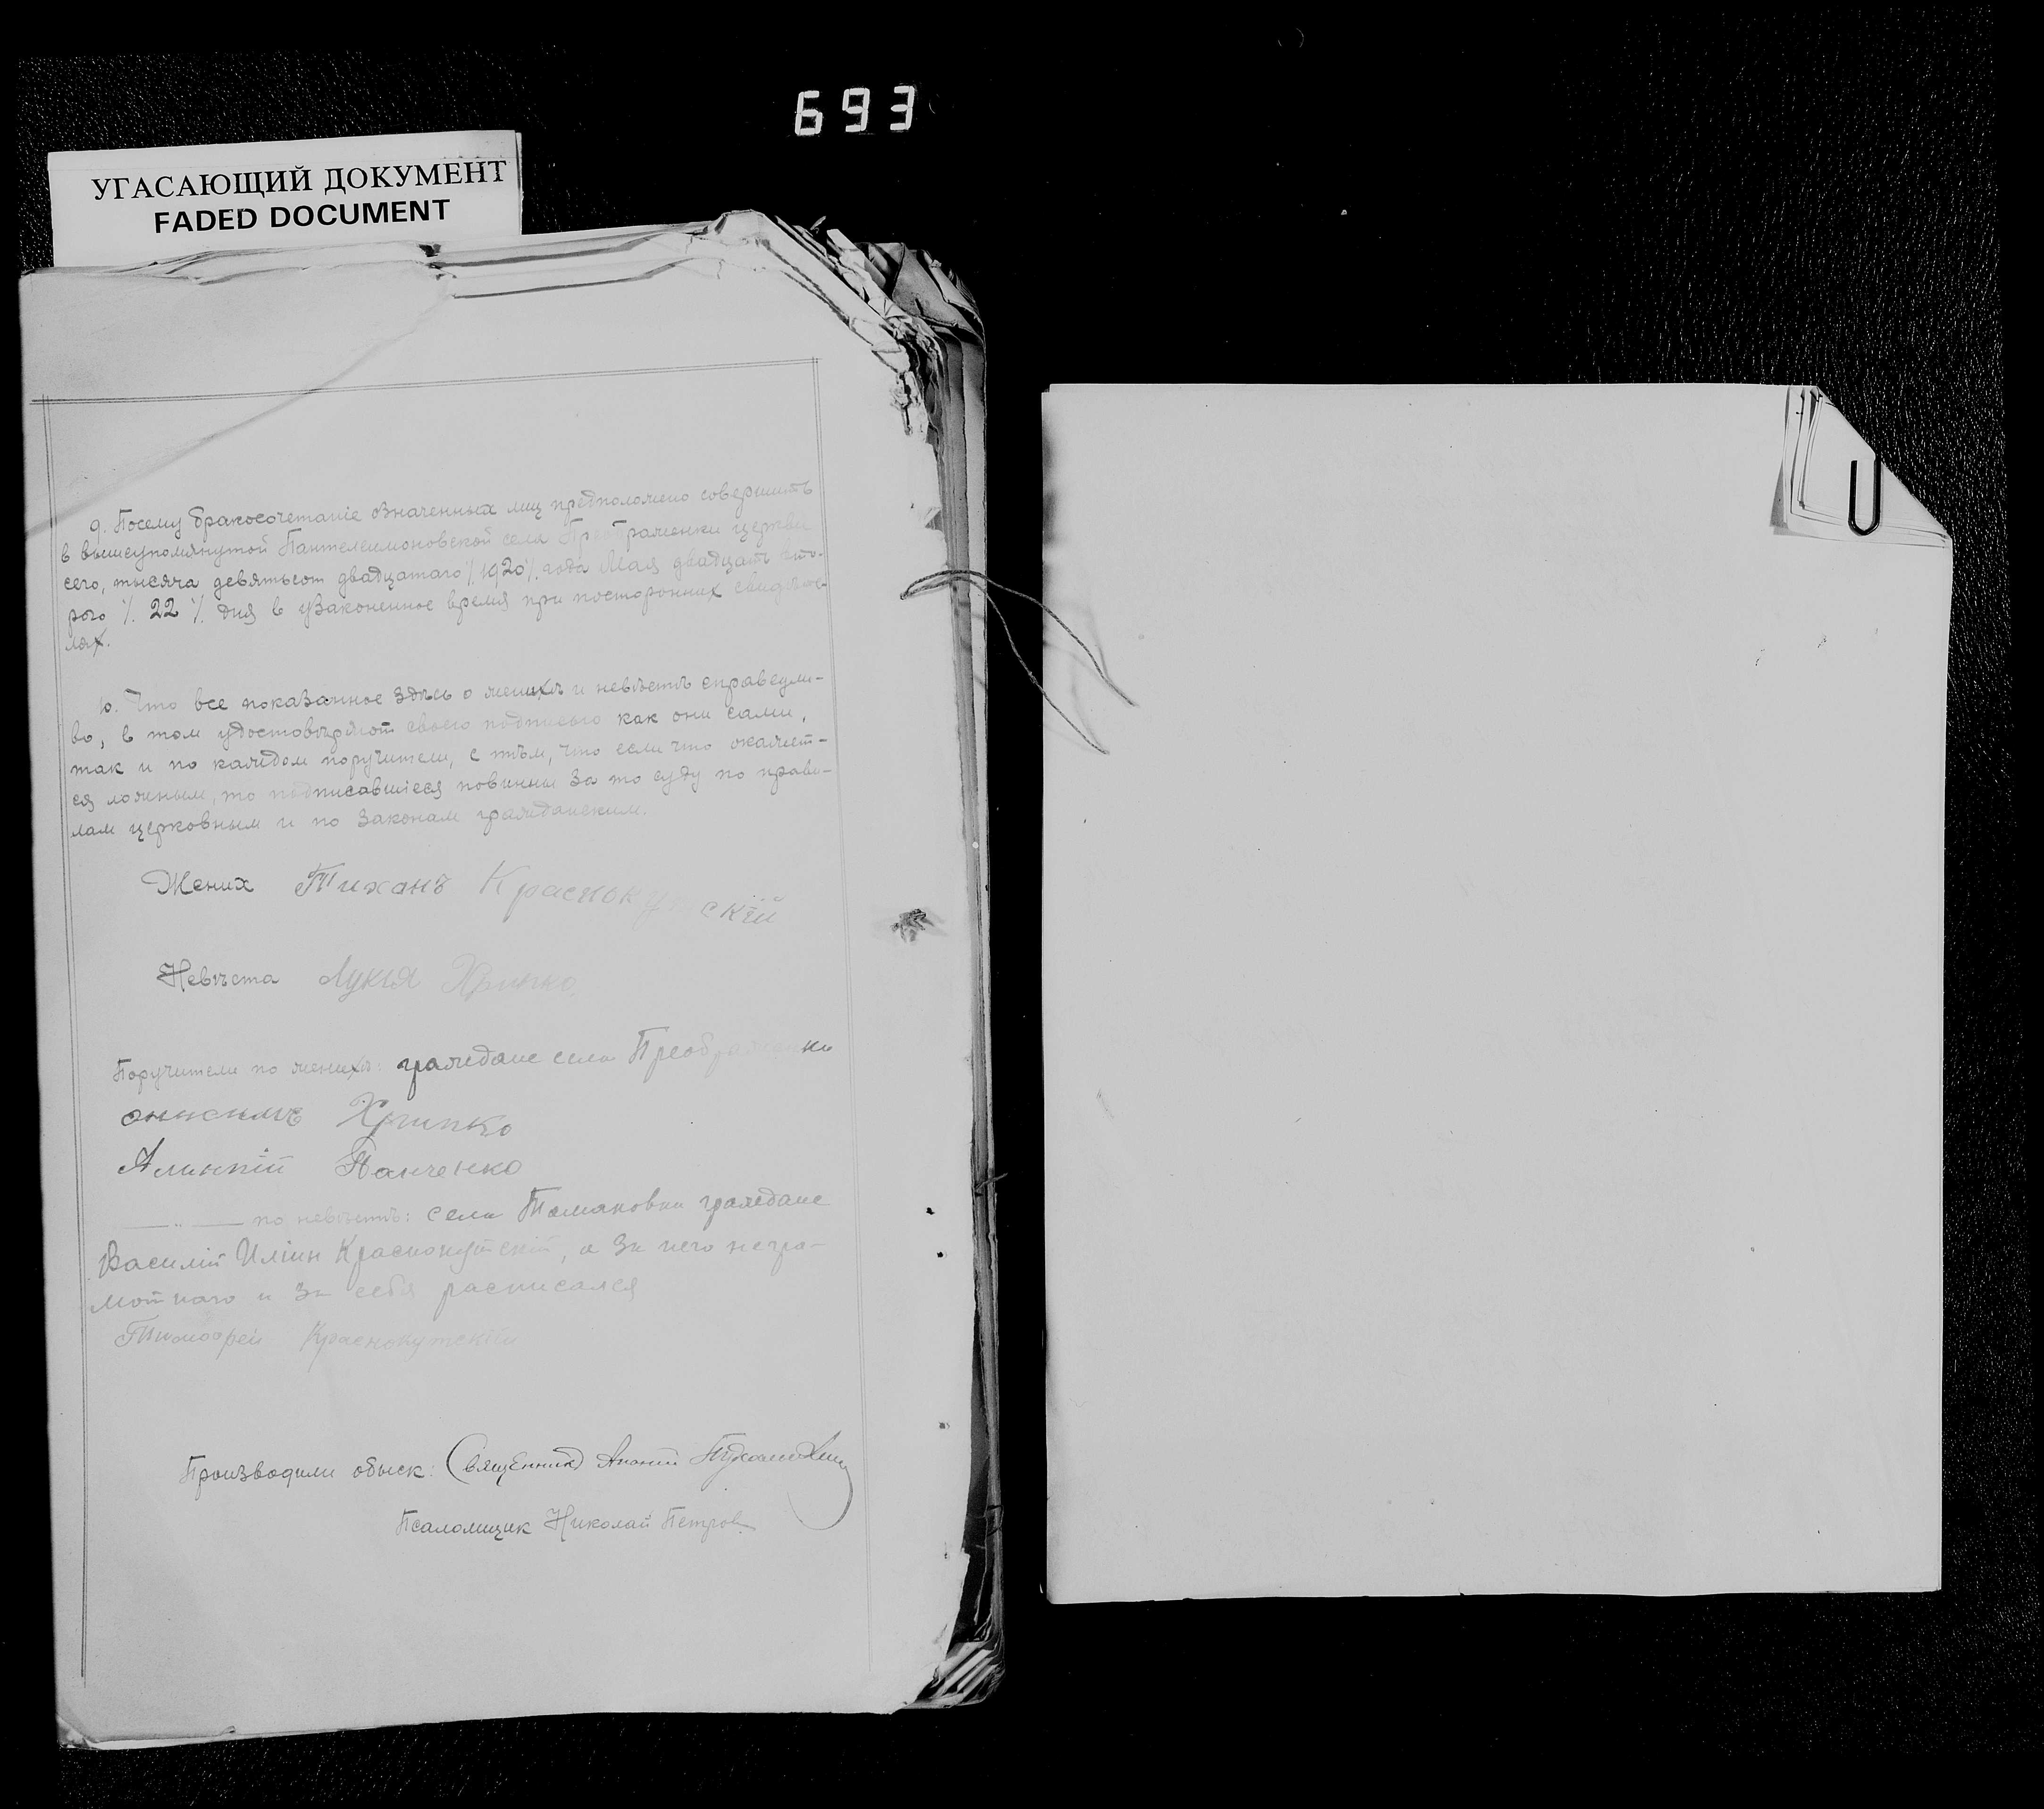 693
УГАСАЮЩИЙ ДОКУМЕНТ
FADED DOCUMENT
9. Посему бракосочетаніе означенных лиц предположено совершить
в вышеупомянутой Пантелеимоновской села Преображенки церкви
сего, тысяча девятьсот двадцатаго /. 1920 /. года Мая двадцать вто-
рого /. 22 /. дня в узаконенное время при посторонних свидѣте-
лях.
10. Что все показанное здѣсь о женихѣ и невѣстѣ справедли-
во, в том удостовѣряют своею подписью как они сами,
так и по каждом поручители, с тѣм, что если что окажет-
ся ложным, то подписавшіеся повинны за то суду по прави-
лам церковным и по законам гражданским.
Жених Тиханъ Краснокутскій
Невѣста Лукія Хрипко
Поручители по женихѣ: граждане села Преображенки
Онисимъ Хрипко
Алипкій Панченко
—„— по невѣстѣ: села Томаковки граждане
Василій Иліин Краснокутскій, а за него негра-
мотнаго и за себя расписался
Тимофей Краснокутскій
Производили обыск: Священник
Псаломщик Николай Петров